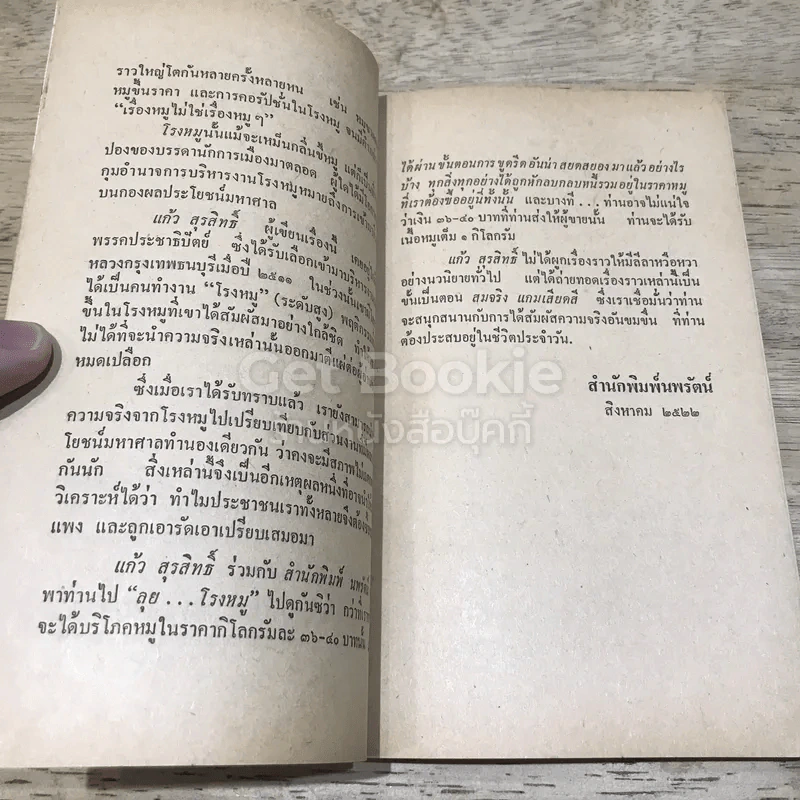 ราวใหญ่โตกันหลายครั้งหลายหน เช่น
หมูขึ้นราคา และการคอรัปชั่นในโรงหมู
“เรื่องหมูไม่ใช่เรื่องหมู ๆ”
โรงหมูนั้นแม้จะเหม็นกลิ่นขี้หมู
ปองของบรรดานักการเมืองมาตลอด ผู้ใดได้
กุมอำนาจการบริหารงานโรงหมูหมายถึงการ
บนกองผลประโยชน์มหาศาล
แก้ว สุรสิทธิ์ ผู้เขียนเรื่องนี้
พรรคประชาธิปัตย์ ซึ่งได้รับเลือกเข้ามาบริหาร
หลวงกรุงเทพธนบุรีเมื่อปี ๒๕๑๑ ในช่วงนั้น
ได้เป็นคนทำงาน “โรงหมู” (ระดับสูง)
ขึ้นในโรงหมูที่เขาได้สัมผัสมาอย่างใกล้ชิด
ไม่ได้ที่จะนำความจริงเหล่านั้นออกมาตีแผ่ต่อ
หมดเปลือก
ซึ่งเมื่อเราได้รับทราบแล้ว เรายังสามารถ
ความจริงจากโรงหมูไปเปรียบเทียบกับส่วนงาน
โยชน์มหาศาลทำนองเดียวกัน ว่าคงจะมีสภาพไม่
กันนัก สิ่งเหล่านี้จึงเป็นอีกเหตุผลหนึ่งที่
วิเคราะห์ได้ว่า ทำไมประชาชนเราทั้งหลายจึงต้อง
แพง และถูกเอารัดเอาเปรียบเสมอมา
แก้ว สุรสิทธิ์ ร่วมกับ สำนักพิมพ์
พาท่านไป “ลุย . . . โรงหมู” ไปดูกันซิว่า กว่าที่
จะได้บริโภคหมูในราคากิโลกรัมละ ๓๖-๔๐
ได้ผ่านขั้นตอนการ ขูดรีด อันน่า สยดสยอง มาแล้ว อย่างไร
บ้าง ทุกสิ่งทุกอย่างได้ถูกหักลบกลบหนี้รวมอยู่ในราคาหมู
ที่เราต้องซื้ออยู่นี้ทั้งนั้น และบางที . . . ท่านอาจไม่แน่ใจ
ว่าเงิน ๓๖-๔๐ บาทที่ท่านส่งให้ผู้ขายนั้น ท่านจะได้รับ
เนื้อหมูเต็ม ๑ กิโลกรัม
แก้ว สุรสิทธิ์ ไม่ได้ผูกเรื่องราวให้มีลีลาหวือหวา
อย่างนวนิยายทั่วไป แต่ได้ถ่ายทอดเรื่องราวเหล่านี้เป็น
ขั้นเป็นตอน สมจริง แกมเสียดสี ซึ่งเราเชื่อมั่นว่าท่าน
จะสนุกสนานกับการได้สัมผัสความจริงอันขมขื่น ที่ท่าน
ต้องประสบอยู่ในชีวิตประจำวัน.
สำนักพิมพ์นพรัตน์
สิงหาคม ๒๕๒๒
Get Bookie
ร้านหนังสือบุ๊คกี้